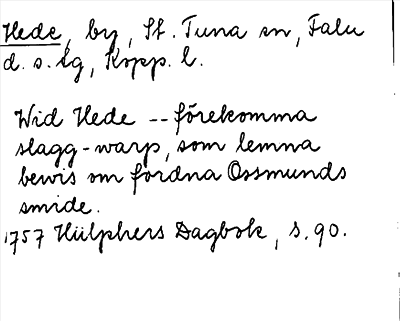 Hede, by, St. Tuna sn, Falu
d. s. lg, Kopp. l.
Wid Hede -- förekomma
slagg-warp, som lemna
bewis om fordna Ossmunds
smide.
1757 Hülphers Dagbok, s. 90.